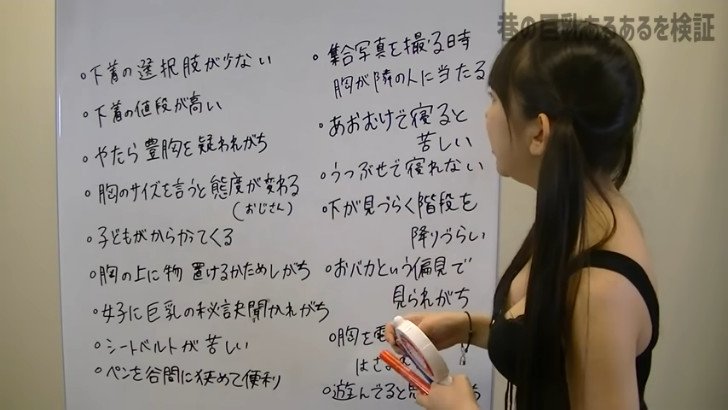 巷の巨乳あるあるを検証
・下着の選択肢が少ない
・下着の値段が高い
・やたら豊胸を疑われがち
・胸のサイズを言うと態度が変わる
(おじさん)
・子どもがからかってくる
・胸の上に物置けるかためしがち
・女子に巨乳の秘訣聞かれがち
・シートベルトが苦しい
・ペンを谷間に挟めて便利
・集合写真を撮る時
胸が隣の人に当たる
・あおむけで寝ると
苦しい
・うつぶせで寝れない
・下が見づらく階段を
降りづらい
・おバカという偏見で
見られがち
・胸を
はさ
・遊んでると思